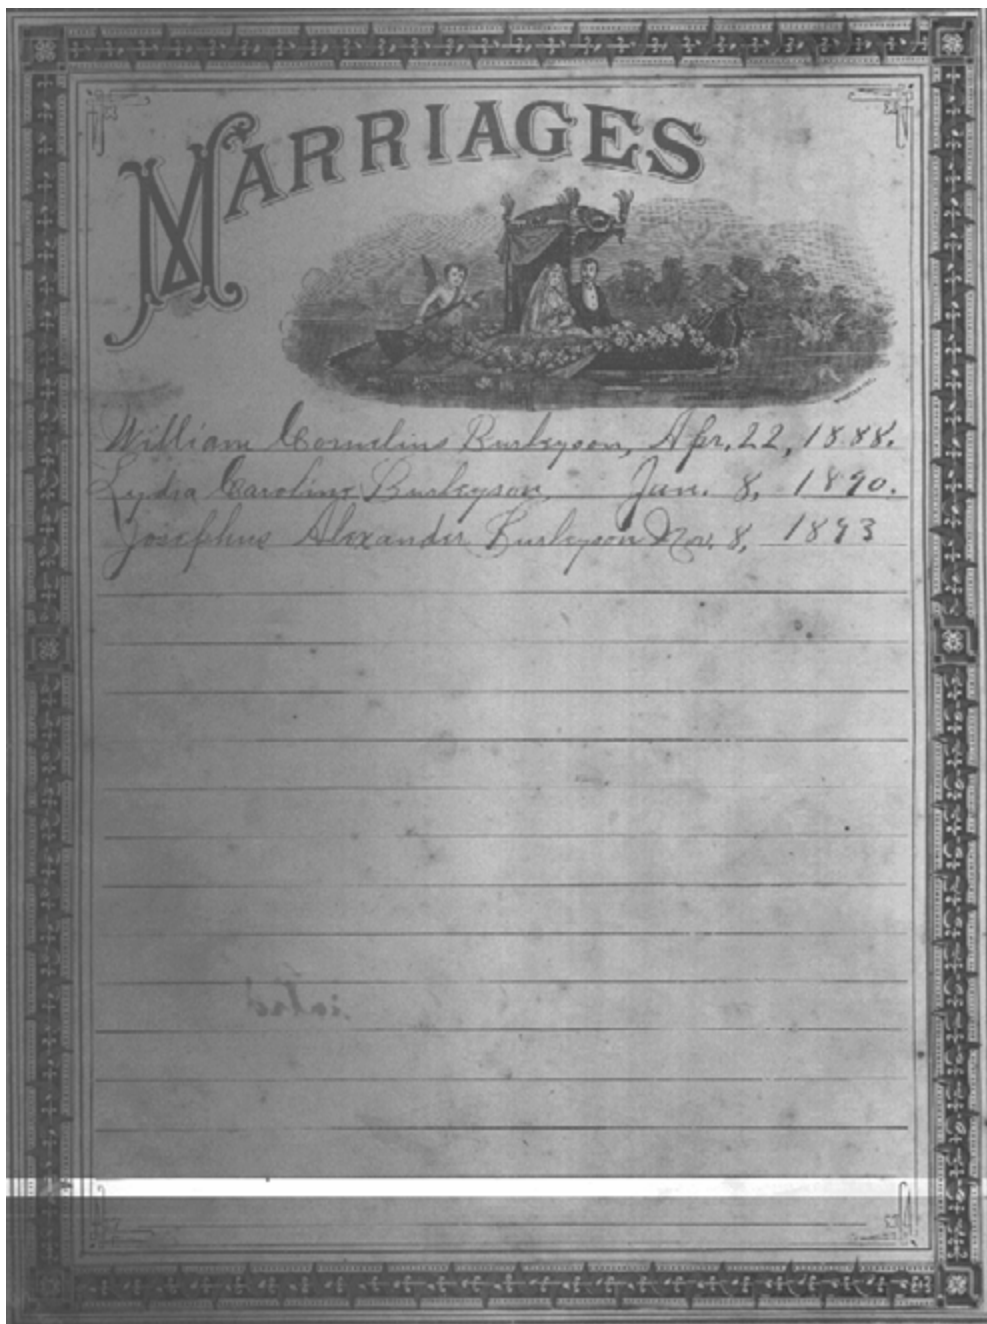 MARRIAGES
William Cornelius Burleyson, Apr. 22, 1888.
Lydia Caroline Burleyson, Jan. 8, 1890.
Josephus Alexander Burleyson Nov. 8, 1893